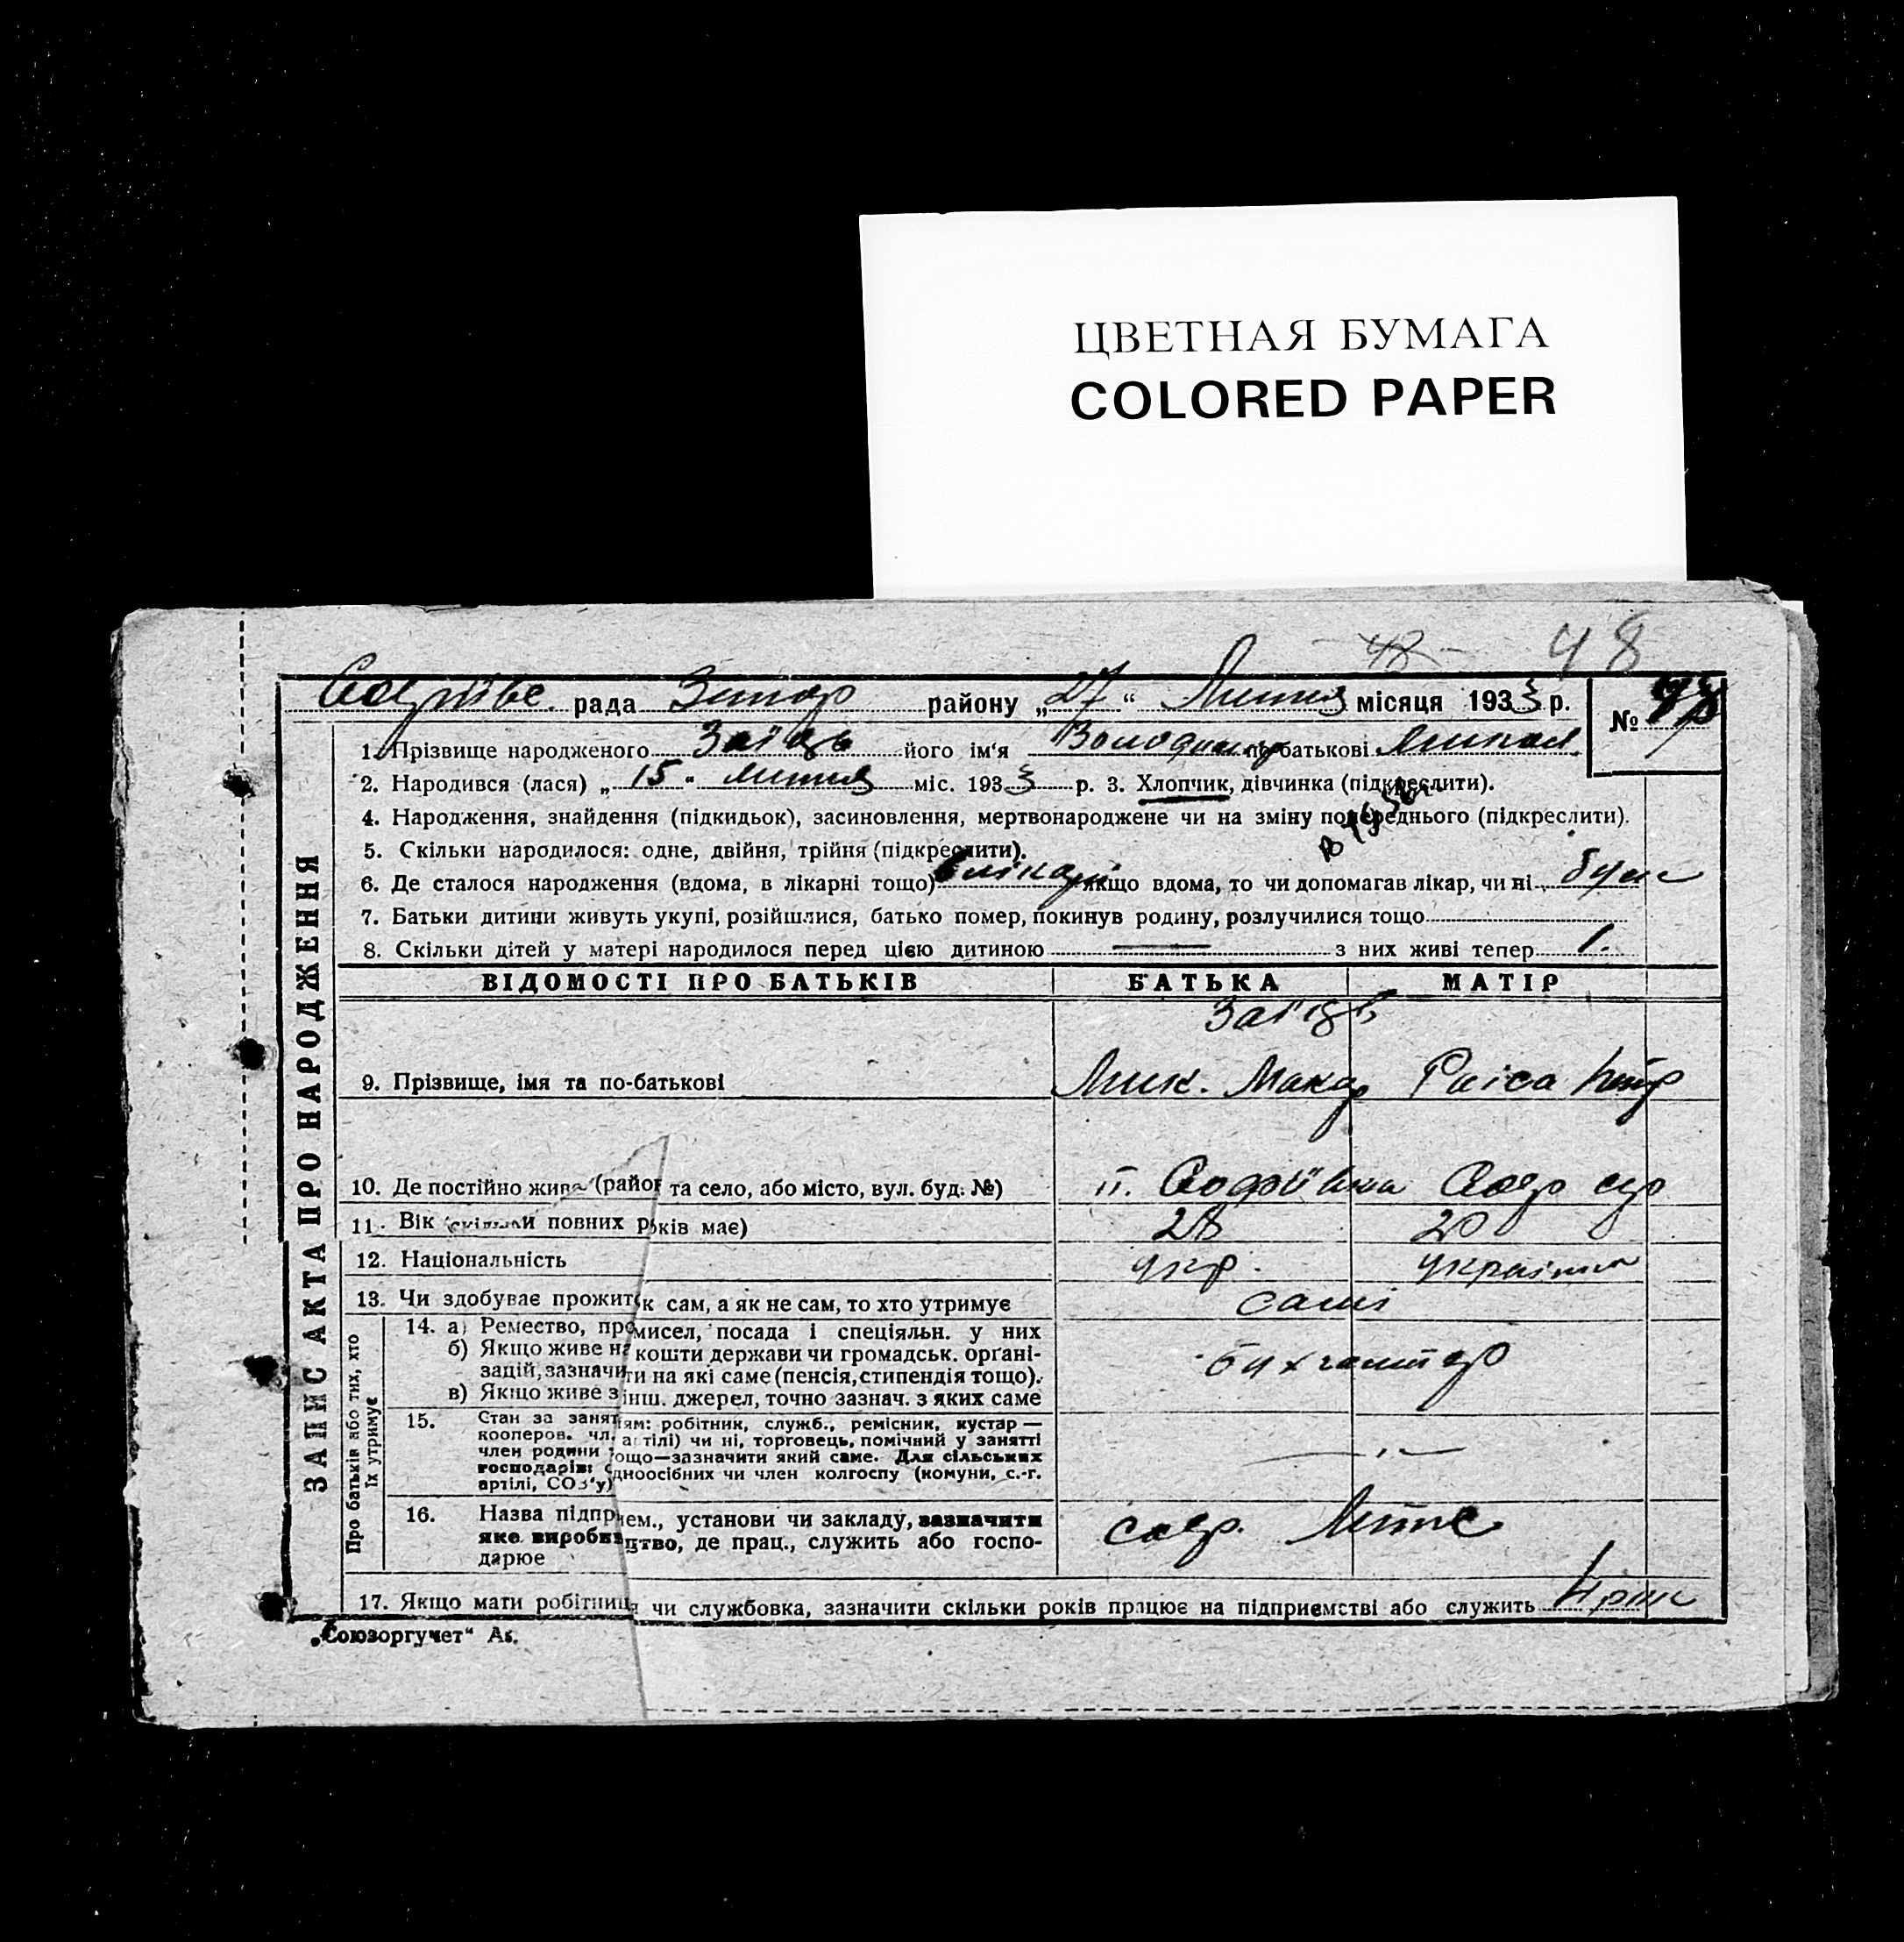 ЦВЕТНАЯ БУМАГА
COLORED PAPER
48 48
рада Запор району „27“ Липня місяця 1933 р. №
1. Прізвище народженого Заїць його ім'я Володимир по батькові Микол
2. Народився (лася) „15“ липня міс. 1933 р. 3. Хлопчик, дівчинка (підкреслити).
4. Народження, знайдення (підкидьок), засиновлення, мертвонароджене чи на зміну попереднього (підкреслити).
5. Скільки народилося: одне, двійня, трійня (підкреслити).
6. Де сталося народження (вдома, в лікарні тощо) в лікарні якщо вдома, то чи допомагав лікар, чи ні
7. Батьки дитини живуть укупі, розійшлися, батько помер, покинув родину, розлучилися тощо
8. Скільки дітей у матері народилося перед цією дитиною — з них живі тепер 1.
ЗАПИС АКТА ПРО НАРОДЖЕННЯ
ВІДОМОСТІ ПРО БАТЬКІВ БАТЬКА МАТІР
Заїць
9. Прізвище, імя та по-батькові Мик. Макар Раіса
10. Де постійно живе (район та село, або місто, вул. буд. №) Софіївка
11. Вік (скільки повних років має) 28 20
12. Національність укр. українка
13. Чи здобуває прожиток сам, а як не сам, то хто утримує самі
Про батьків або тих, хто їх утримує
14. а) Ремество, промисел, посада і спеціяльн. у них
б) Якщо живе на кошти держави чи громадськ. органі-
зацій, зазначити на які саме (пенсія, стипендія тощо). бухгалтер
в) Якщо живе з інш. джерел, точно зазнач. з яких саме
15. Стан за заняттям: робітник, служб., ремісник, кустар —
кооперов. чл. артілі) чи ні, торговець, помічний у занятті
член родини тощо—зазначити який саме. Для сільських — " —
господарів: одноосібних чи член колгоспу (комуни, с.-г.
артілі, СОЗ'у)
16. Назва підприєм., установи чи закладу, зазначити
яке виробництво, де прац., служить або госпо-
дарює
17. Якщо мати робітниця чи службовка, зазначити скільки років працює на підприємстві або служить
„Союзоргучет“